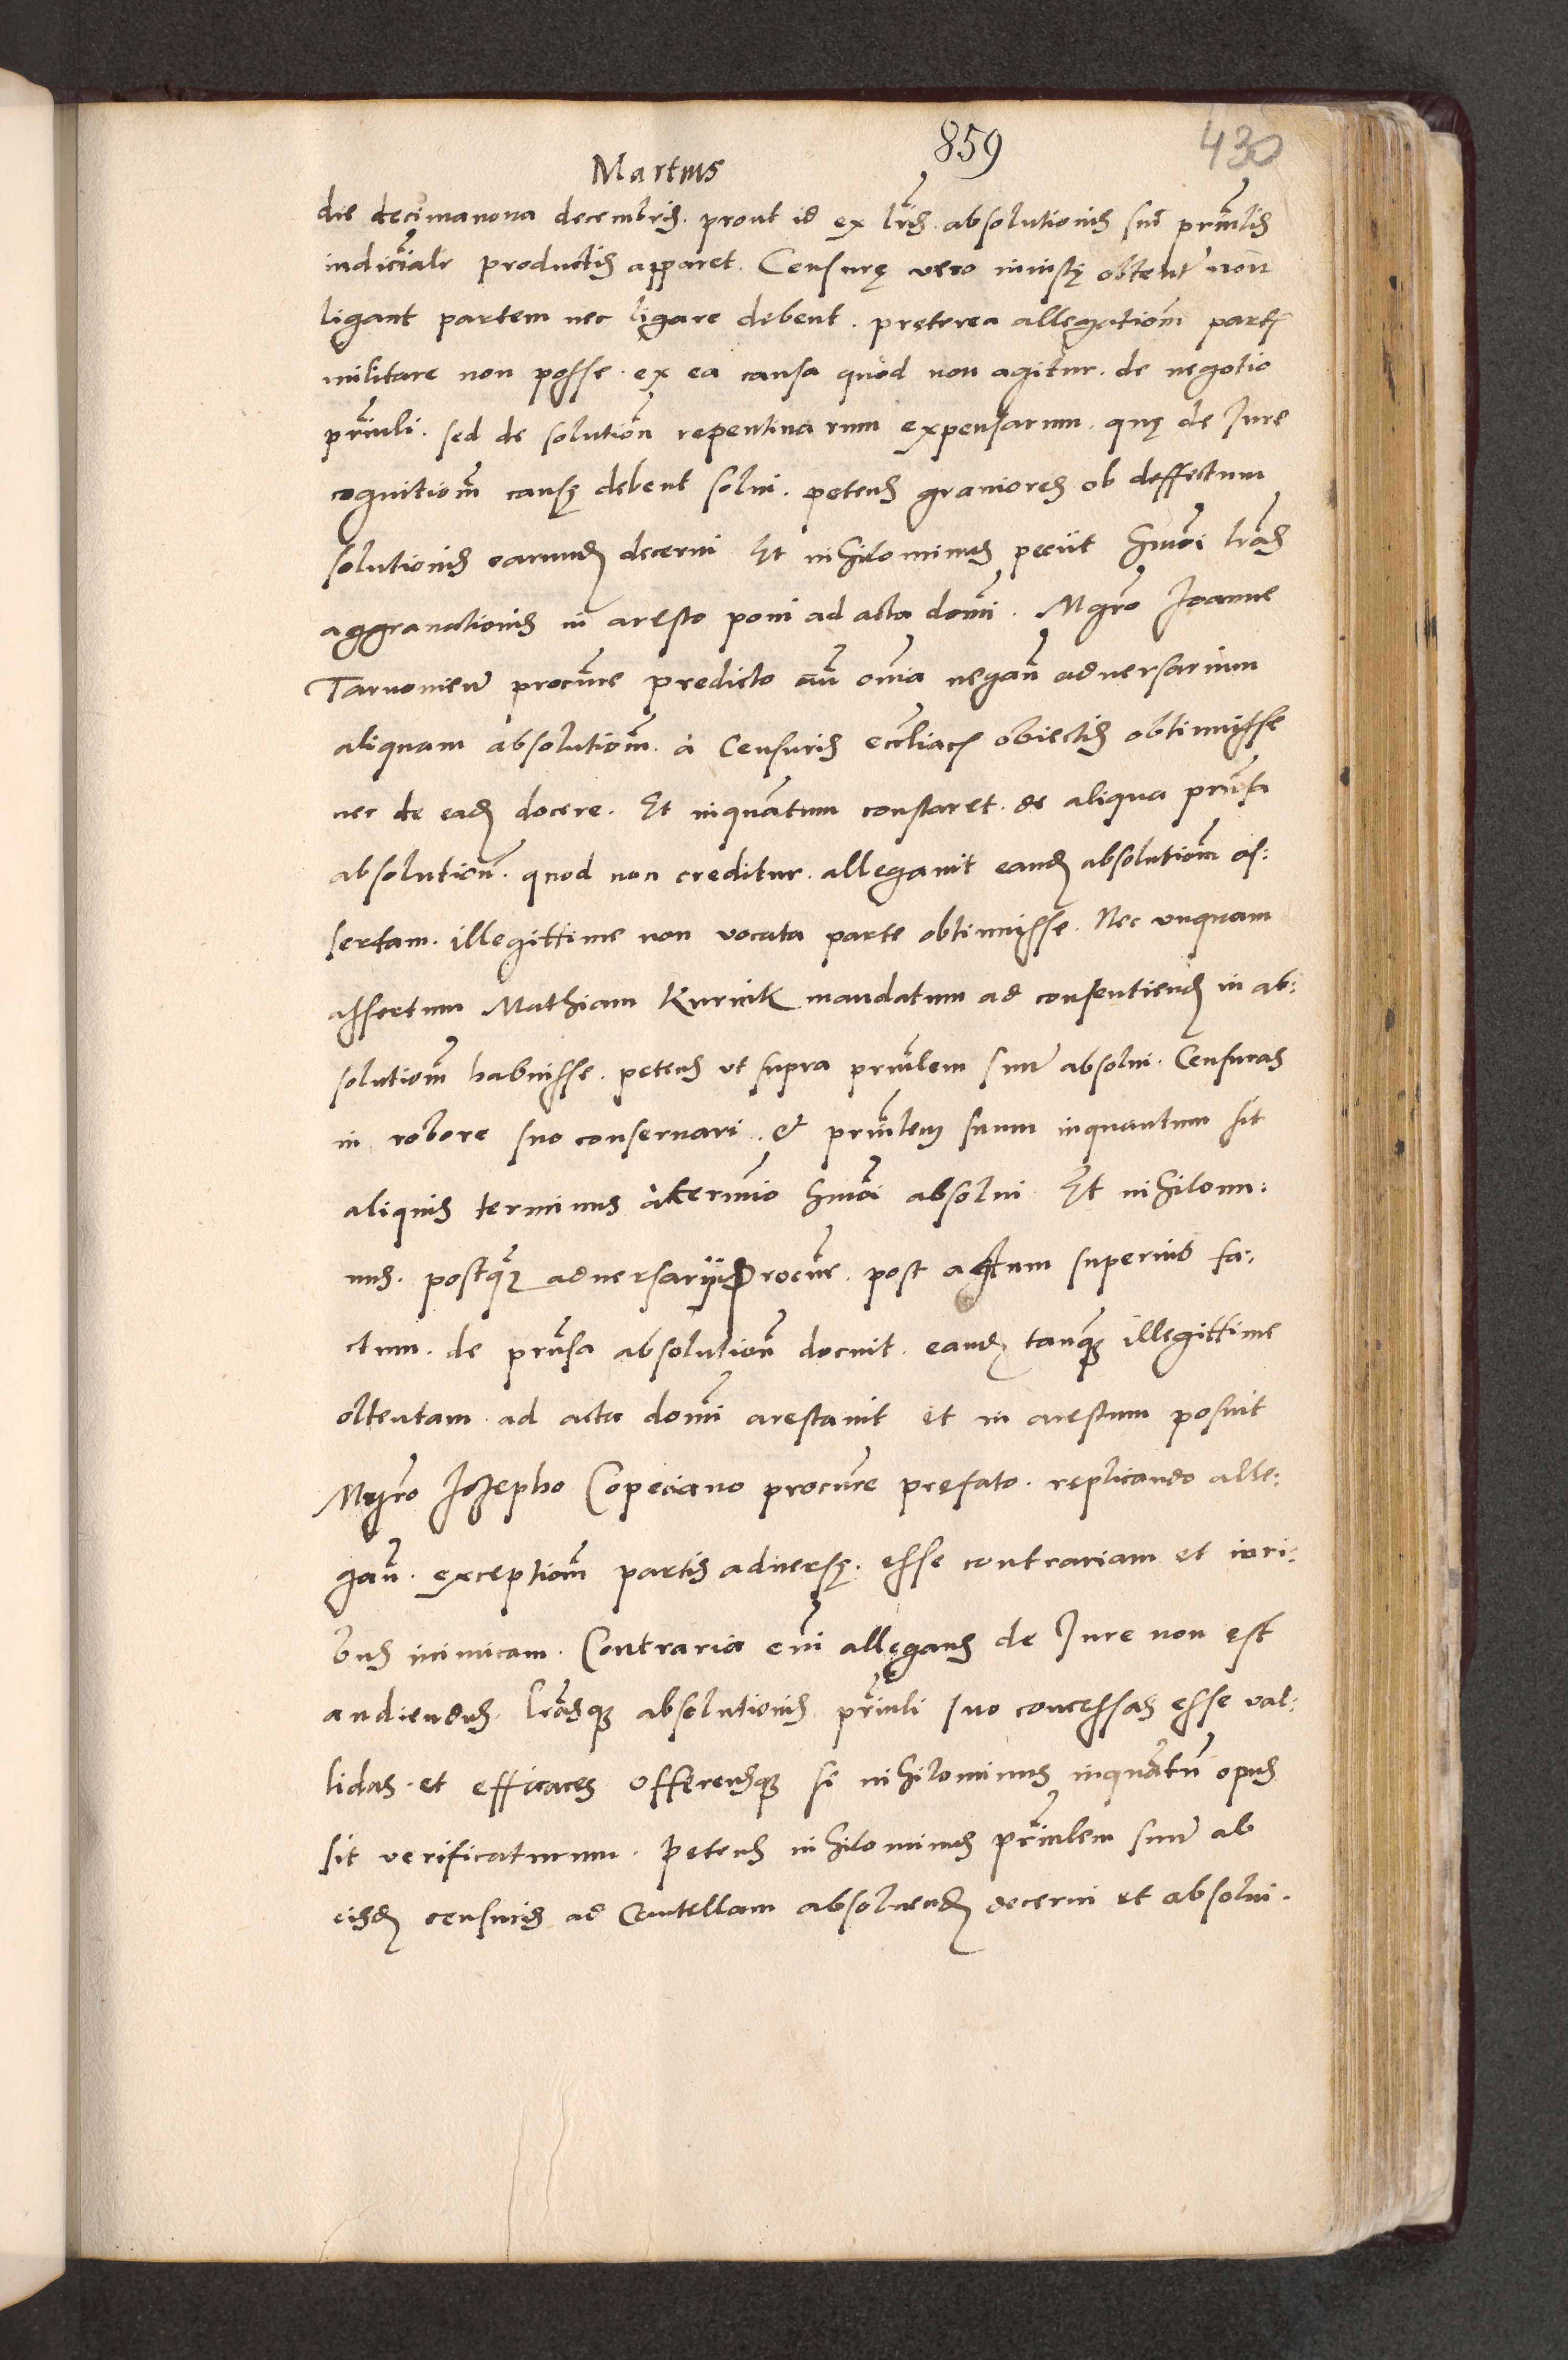 859
430
Martius
die decimanona decembris. prout id ex lris absolutionis sui prinlis
iudicialr productis apparet. Censurę vero iniustę obtent non
ligant partem nec ligare debent. preterea allegationm partis
militare non posse. ex ea causa quòd non agitur. de negotio
prinli. sed de solution repentina rum expensarum. quę de Iure
cognitionm causę debent solui. petens grauiores ob deffectum
solutionis earund decerni Et nihilominus peciit hmoi lras
aggrauationis in aresto poni ad acta domi. Mgro Joanne
Tarnouien procure predicto aut omia negan aduersarium
aliquam absolutionm. à Censuris eccliacis obiectis obtinuisse
nec de ead docere. Et inquantum constaret. de aliqua prænsa
absolution. quod non creditur. allegauit eand absolutionm as:
sertam. illegittime non vocata parte obtinuisse. Nec vnquam
assertum Mathiam Kurick mandatum ad consentiend in ab:
solutionm habuisse. petens vt supra prinlem suu absolui. Censuras
in robore suo conseruari. & prinlem suum inquantum sit
aliquis terminus à termio hmoi absolui Et nihilomi:
nus. postq aduersarijs procure. post actum superius fa:
ctum. de prnsa absolution docuit. eand tanq illegittime
obtentam. ad acta domi arestauit et in arestum posuit
Mgro Josepho Copeciano procure prefato. replicando alle:
gan. exceptionm partis aduersę. esse contrariam et iuri:
bus inimicam. Contraria eni allegans de Iure non est
audiendus. lrasq absolutionis prinli suo concessas esse val:
lidas. et efficaces offerensq se nihilominus inquantu opus
sit verificaturum. Petens nihilominus prinlem suu ab
eisd censuris ad Cautellam absoluend decerni et absolui.